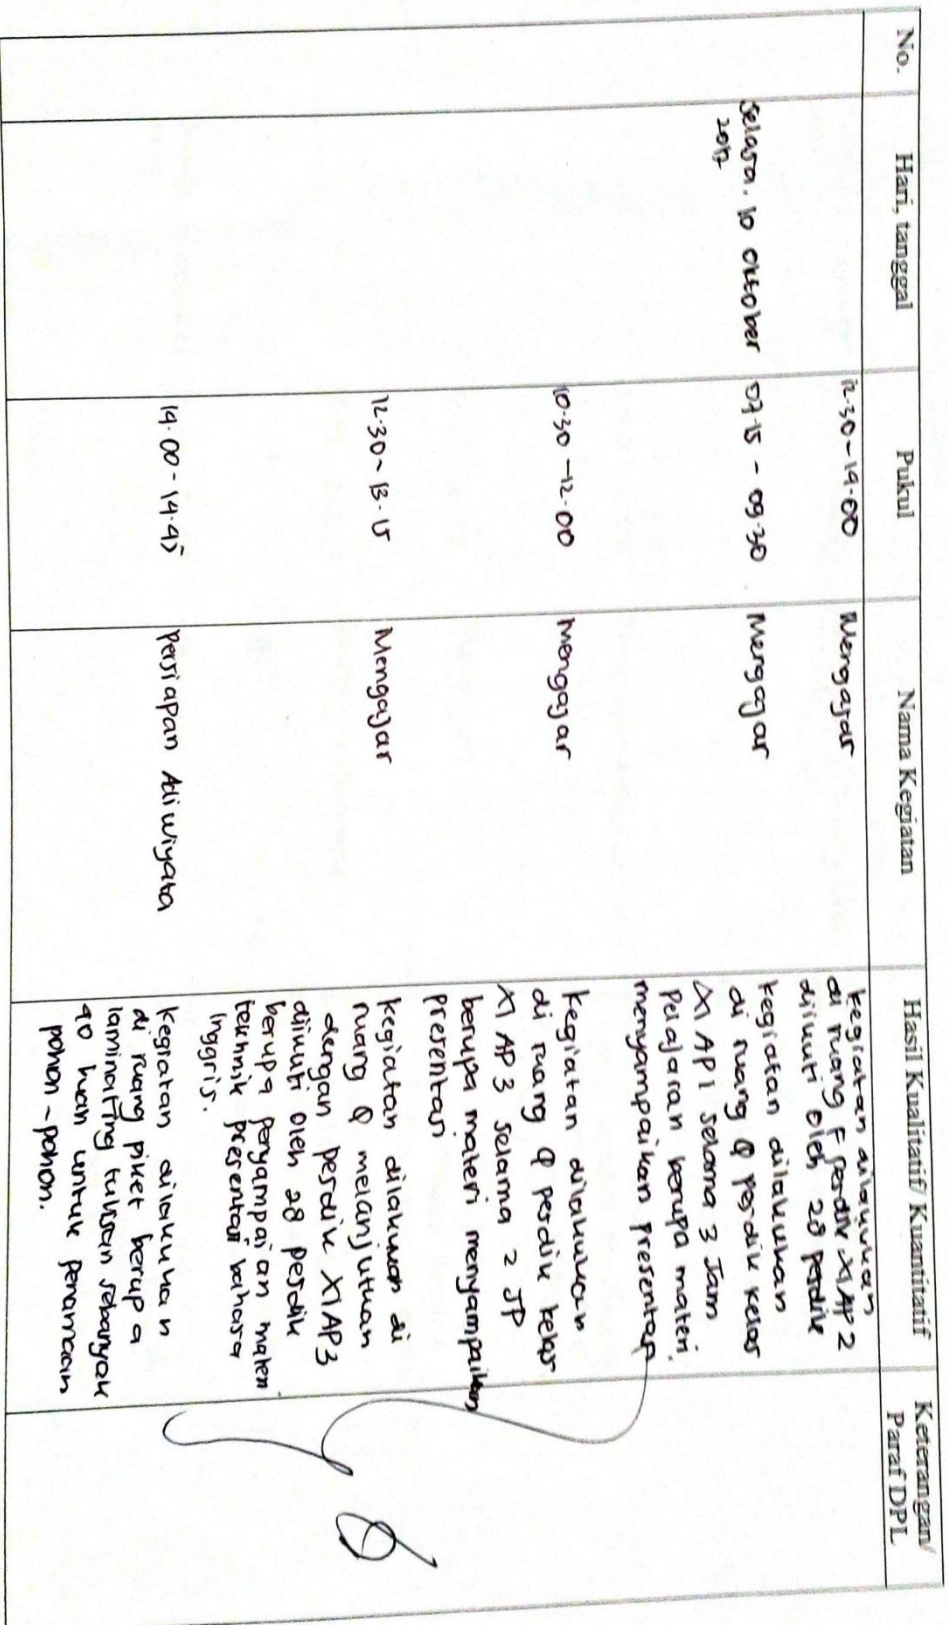 No.
Hari, tanggal
Pukul
Nama Kegiatan
Hasil Kualitatif/ Kuantitatif
Keterangan/
Paraf DPL
12.30 - 14.00
Mengajar
Kegiatan dilakukan
di ruang F perdik XI AP 2
diikuti oleh 28 perdik
Selasa, 10 Oktober
2017
07.15 - 09.30
Mengajar
Kegiatan dilakukan
di ruang Q perdik kelas
XI AP 1 selama 3 Jam
Pelajaran berupa materi
menyampaikan presentasi
10.30 - 12.00
Mengajar
Kegiatan dilakukan
di ruang Q perdik kelas
XI AP 3 selama 2 JP
berupa materi menyampaikan
presentasi
12.30 - 13.15
Mengajar
Kegiatan dilakukan di
ruang Q melanjutkan
dengan perdik XI AP 3
diikuti oleh 28 perdik
berupa penyampaian materi
tekhnik presentasi bahasa
Inggris.
14.00 - 14.45
Persiapan Adiwiyata
Kegiatan dilakukan
di ruang piket berupa
laminating tulisan sebanyak
40 buah untuk penamaan
pohon-pohon.